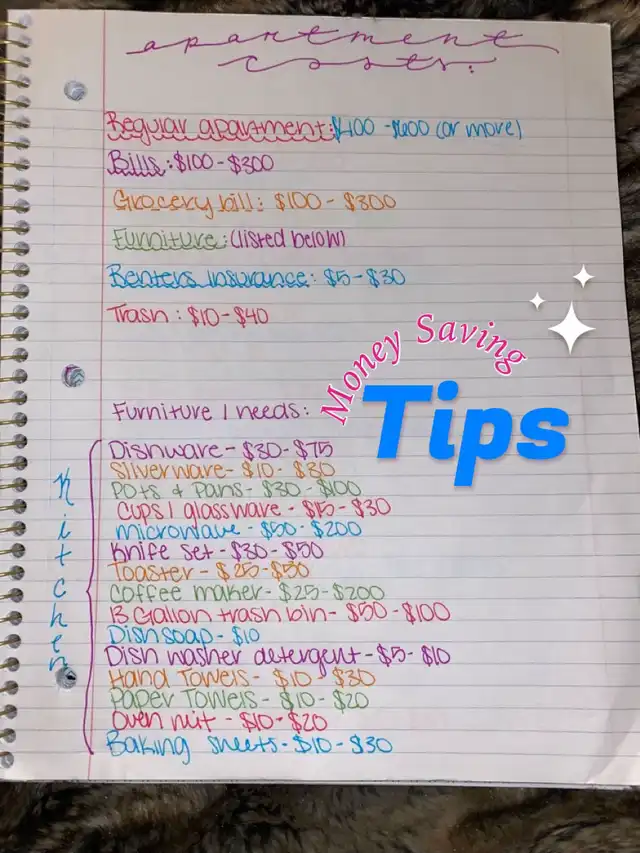 apartment
costs:
Regular apartment: $400 - $600 (or more)
Bills: $100 - $300
Grocery bill: $100 - $300
Furniture: (listed below)
Renters insurance: $5 - $30
Trash: $10 - $40
Money Saving
Tips
Furniture / needs:
Kitchen
Dishware - $30 - $75
Silverware - $10 - $30
Pots + Pans - $30 - $100
Cups / glassware - $15 - $30
microwave - $50 - $200
Knife set - $30 - $50
Toaster - $25 - $50
Coffee maker - $25 - $200
13 Gallon trash bin - $50 - $100
Dish soap - $10
Dish washer detergent - $5 - $10
Hand Towels - $10 - $30
Paper Towels - $10 - $20
Oven mit - $10 - $20
Baking sheets - $10 - $30